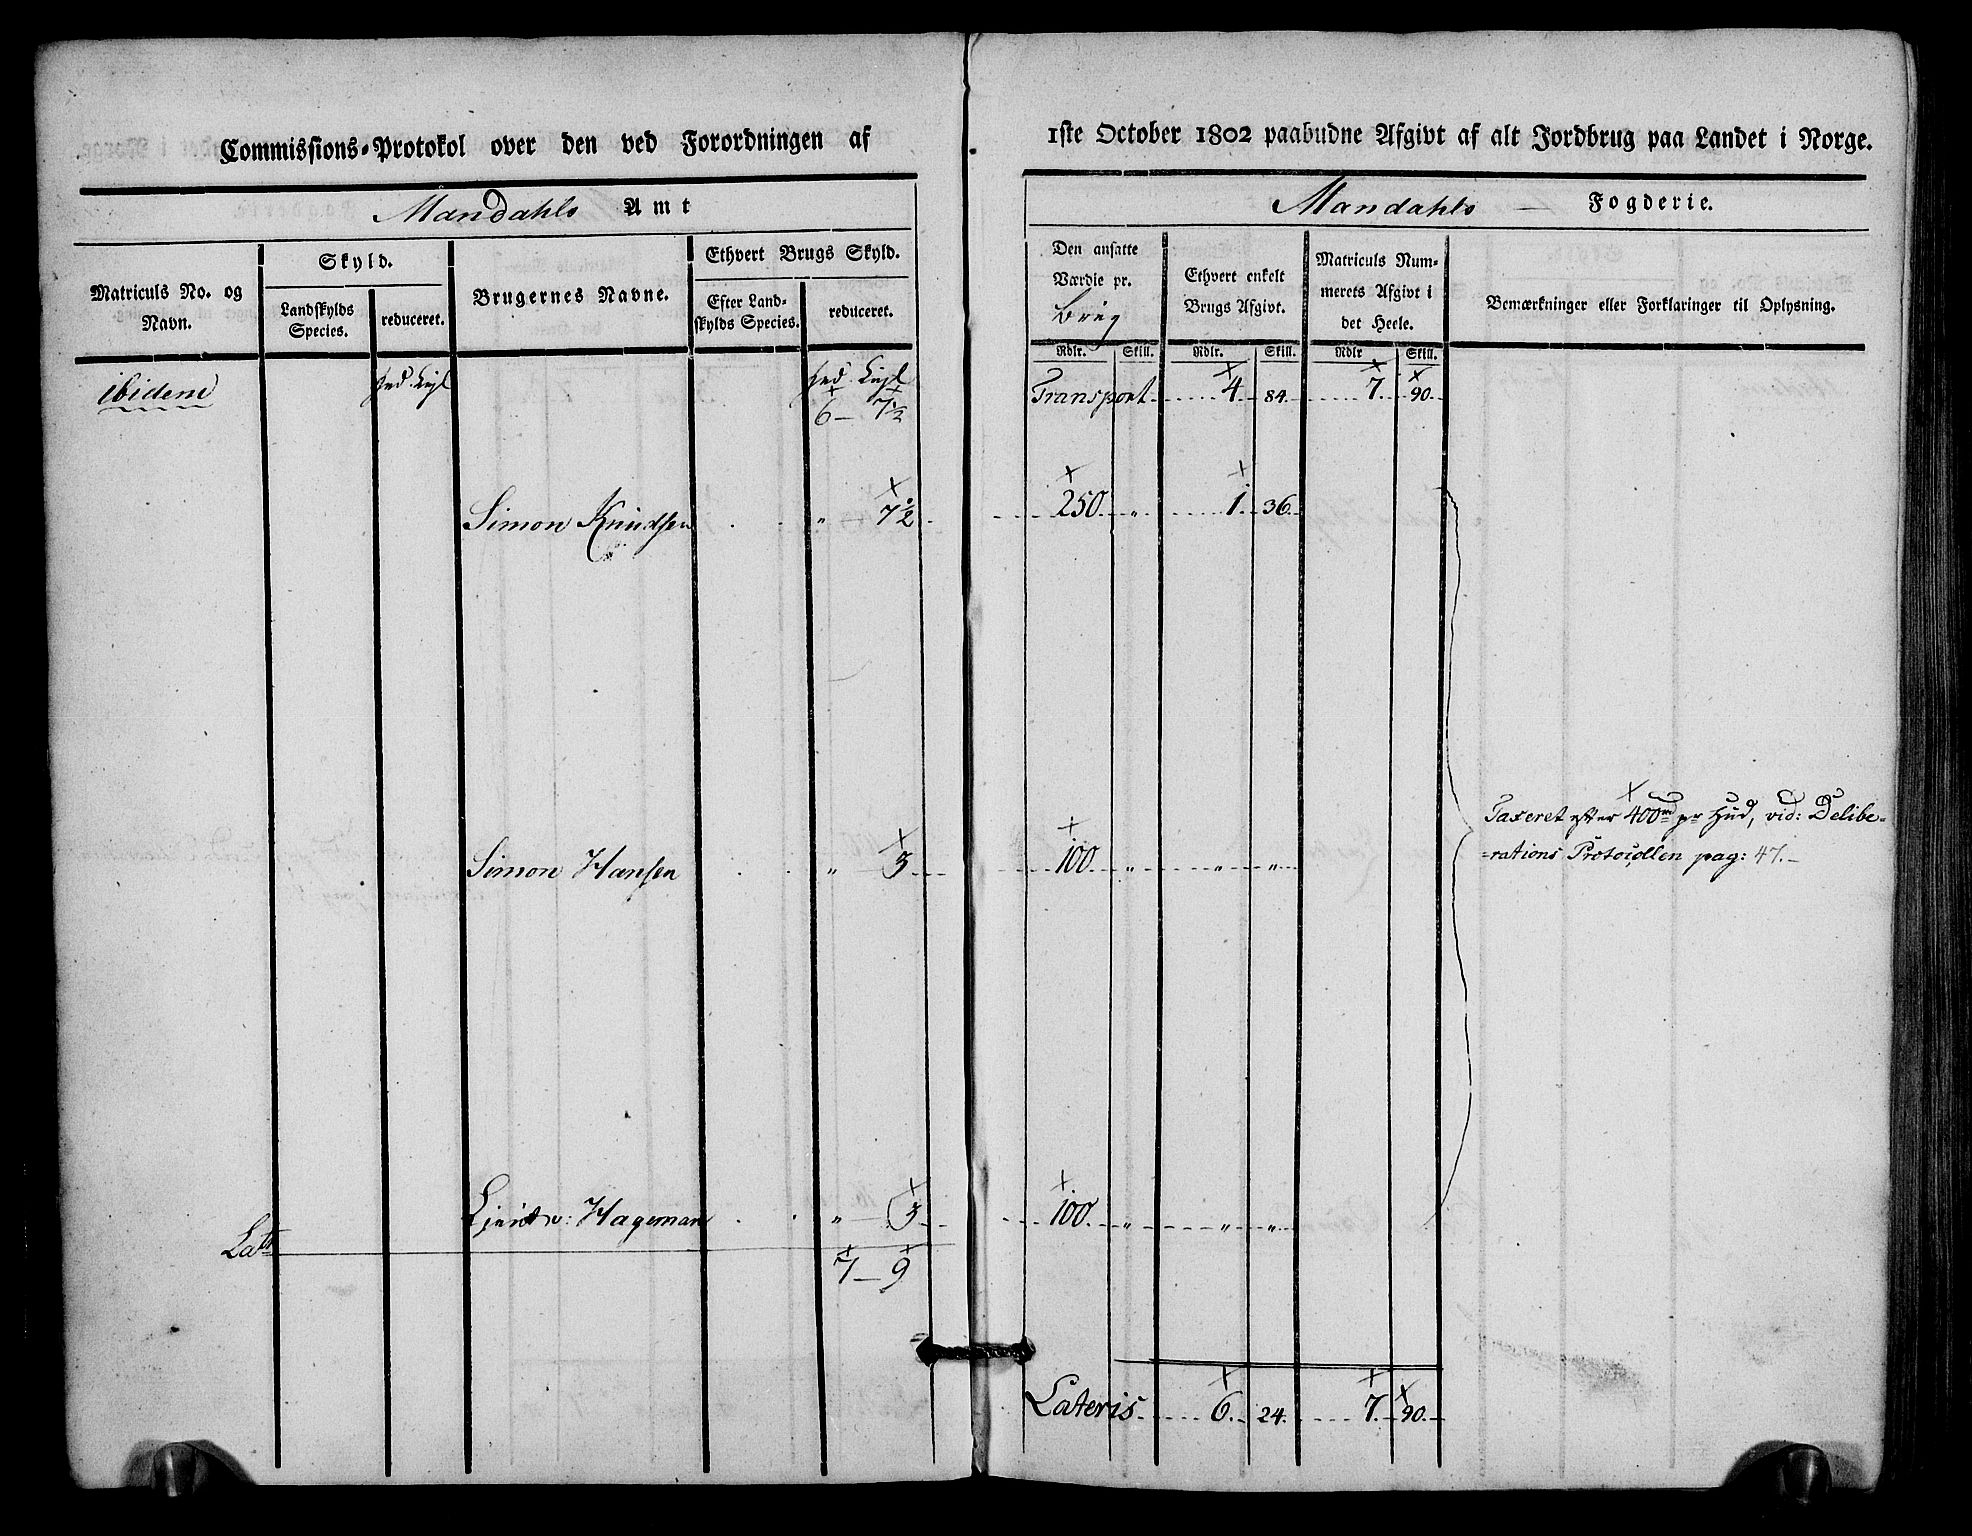 Commissions-Protokol over den ved Forordningen af
1ste October 1802 paabudne Afgivt af alt Jordbrug paa Landet i Norge.
Mandahls Amt
Mandahls Fogderie.
Matriculs No. og Navn.
Skyld.
Landskylds Species.
reduceret.
Brugernes Navne.
Ethvert Brugs Skyld.
Efter Landskylds Species.
reduceret.
Den ansatte Værdie pr. Brug
Ethvert enkelt Brugs Afgivt.
Matriculs Nummerets Afgivt i det Heele.
Bemærkninger eller Forklaringer til Oplysning.
Rdlr. Skill. Rdlr. Skill. Rdlr Skill.
ibidem
6 — 7½
Transport 4 84. 7. 90.
Simon Knudsen „ 7½ 250. „ 1. 36.
Simon Hansen „ 3 100. „ „ „
Taxeret efter 400rd pr Hud, vid: Delibe=
=rations Protocollen pag: 47.—
v: Hageman „ 3 100. „ „ „
Lats 7 — 9
Lateris 6. 24. 7. 90.